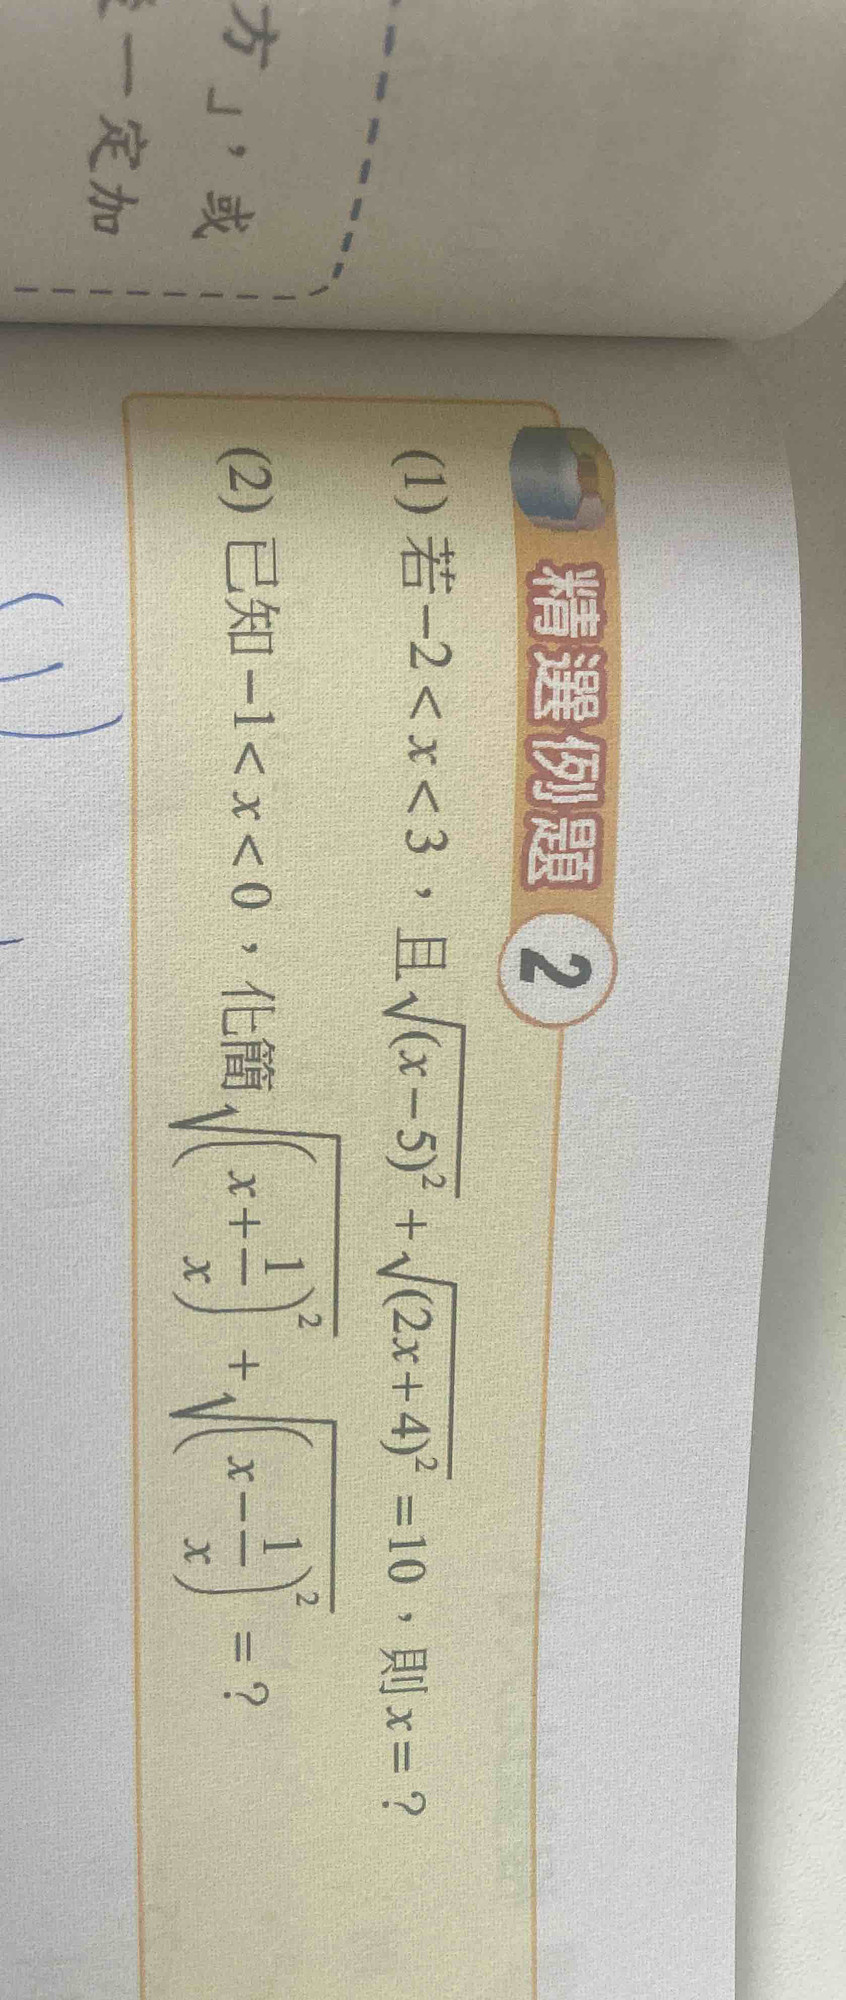 方」，或
一定加
精選例題 2
(1) 若−2<x<3，且√(x−5)² + √(2x+4)² =10，則x=?
(2) 已知−1<x<0，化簡√(x+1/x)² + √(x−1/x)² =?
(1)